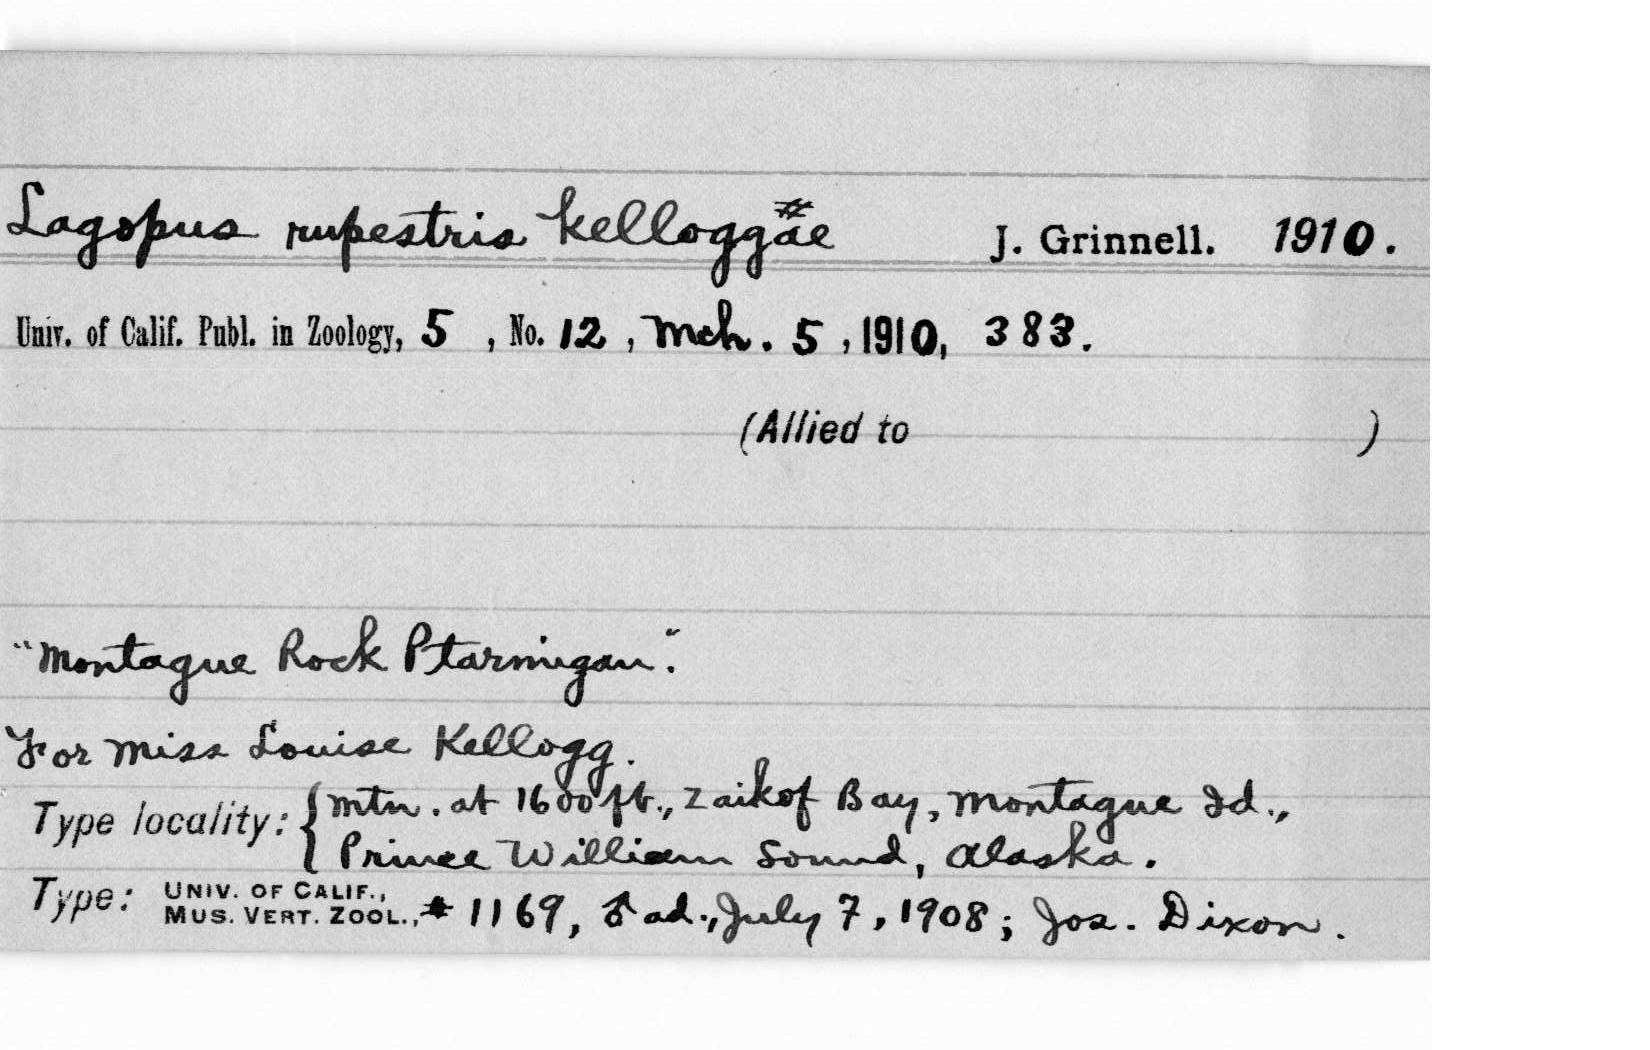 Lagopus rupestris kelloggae # J. Grinnell. 1910.
Univ. of Calif. Publ. in Zoology, 5, No. 12, Mch. 5, 1910, 383.
(Allied to )
"Montague Rock Ptarmigan".
For Miss Louise Kellogg.
Type locality: { Mtn. at 1600 ft., Zaikof Bay, Montague Id.,
Prince William Sound, Alaska.
Type: UNIV. OF CALIF., MUS. VERT. ZOOL., # 1169, ♂ ad., July 7, 1908; Jos. Dixon.